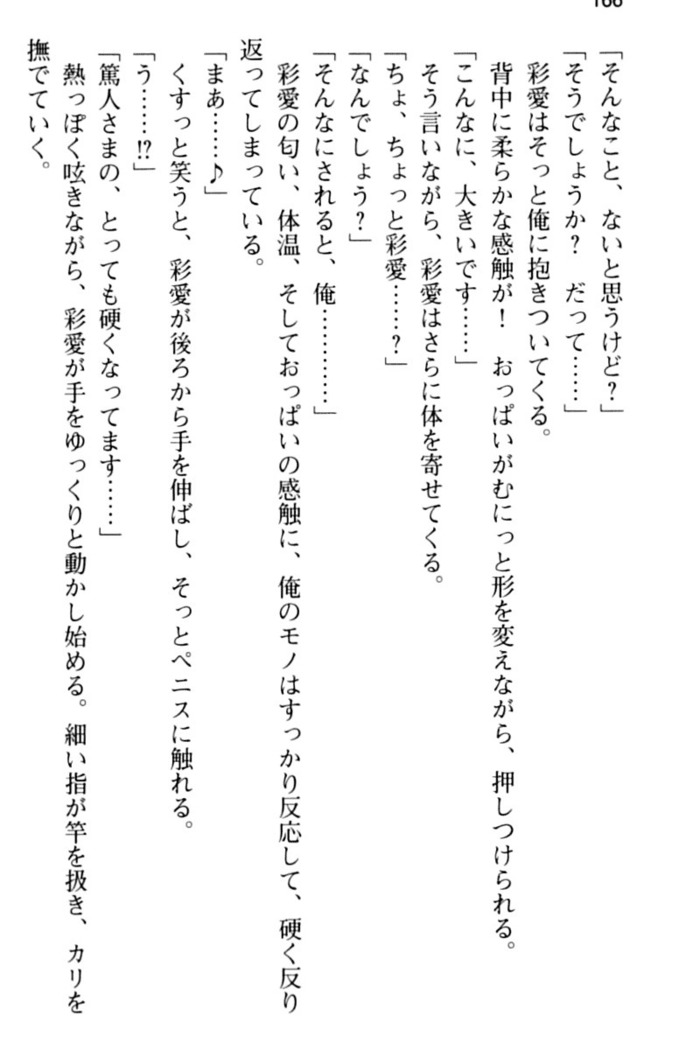 166
「そんなこと、ないと思うけど?」
「そうでしょうか? だって……」
彩愛はそっと俺に抱きついてくる。
背中に柔らかな感触が! おっぱいがむにっと形を変えながら、押しつけられる。
「こんなに、大きいです……」
そう言いながら、彩愛はさらに体を寄せてくる。
「ちょ、ちょっと彩愛……?」
「なんでしょう?」
「そんなにされると、俺…………」
彩愛の匂い、体温、そしておっぱいの感触に、俺のモノはすっかり反応して、硬く反り
返ってしまっている。
「まあ……♪」
くすっと笑うと、彩愛が後ろから手を伸ばし、そっとペニスに触れる。
「う……!?」
「篤人さまの、とっても硬くなってます……」
熱っぽく呟きながら、彩愛が手をゆっくりと動かし始める。細い指が竿を扱き、カリを
撫でていく。